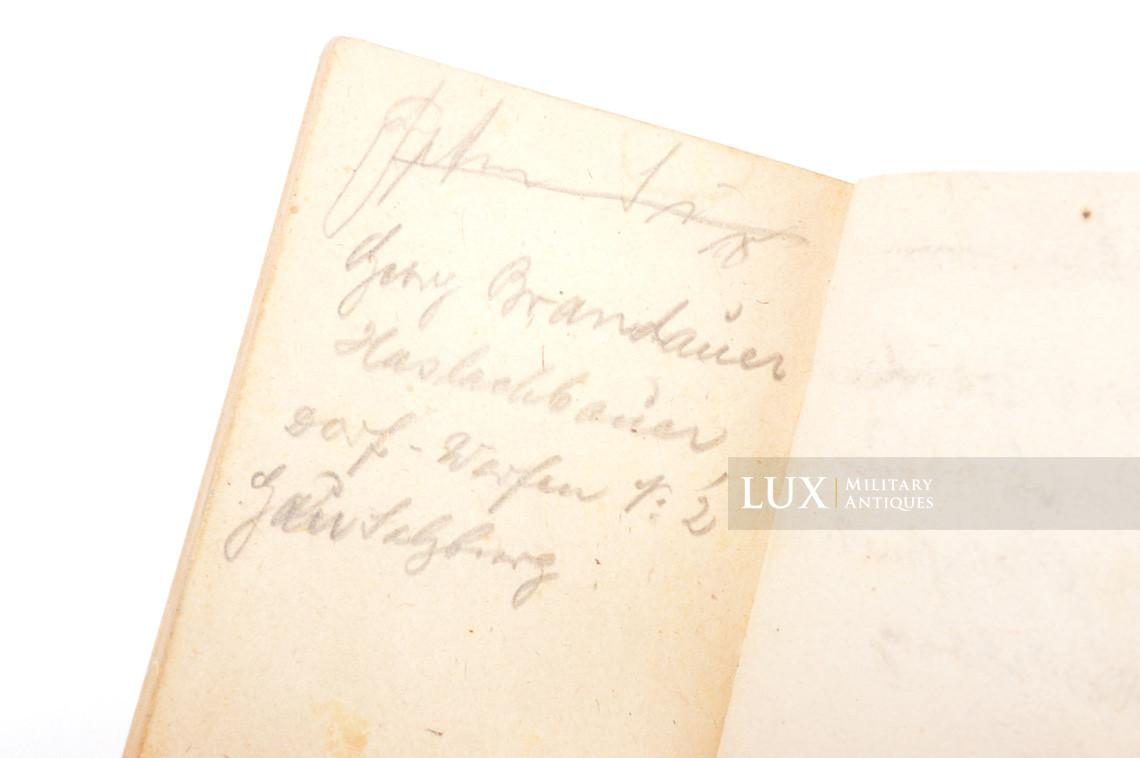 Georg Brandauer
Haslachbauer
Dorf-Werfen N: 2
Gau Salzburg
LUX MILITARY ANTIQUES